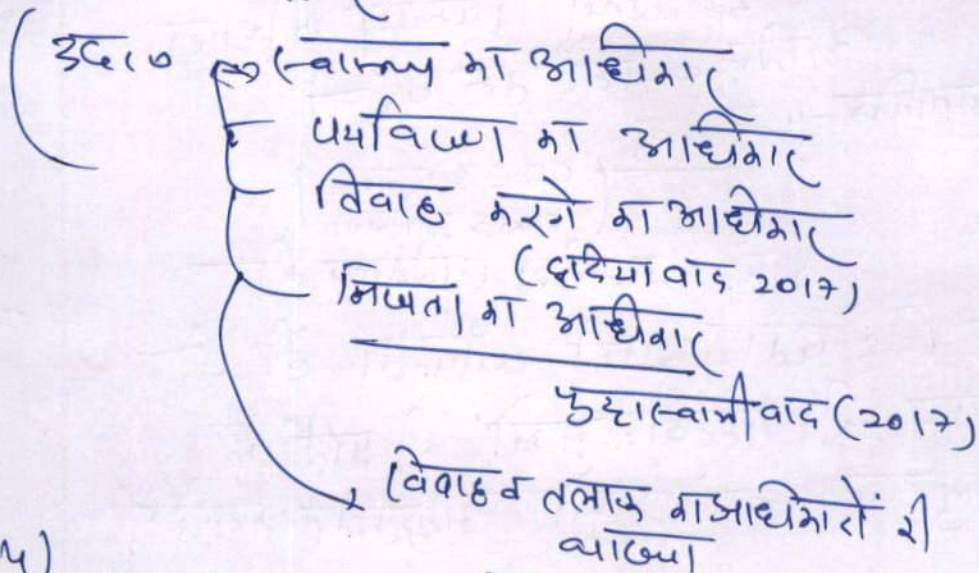 उदा० → स्वास्थ्य का अधिकार
पर्यावरण का अधिकार
विवाह करने का अधिकार
(हादिया वाद 2017)
निजता का अधिकार
पुट्टास्वामी वाद (2017)
विवाह व तलाक का अधिकारों की
व्याख्या